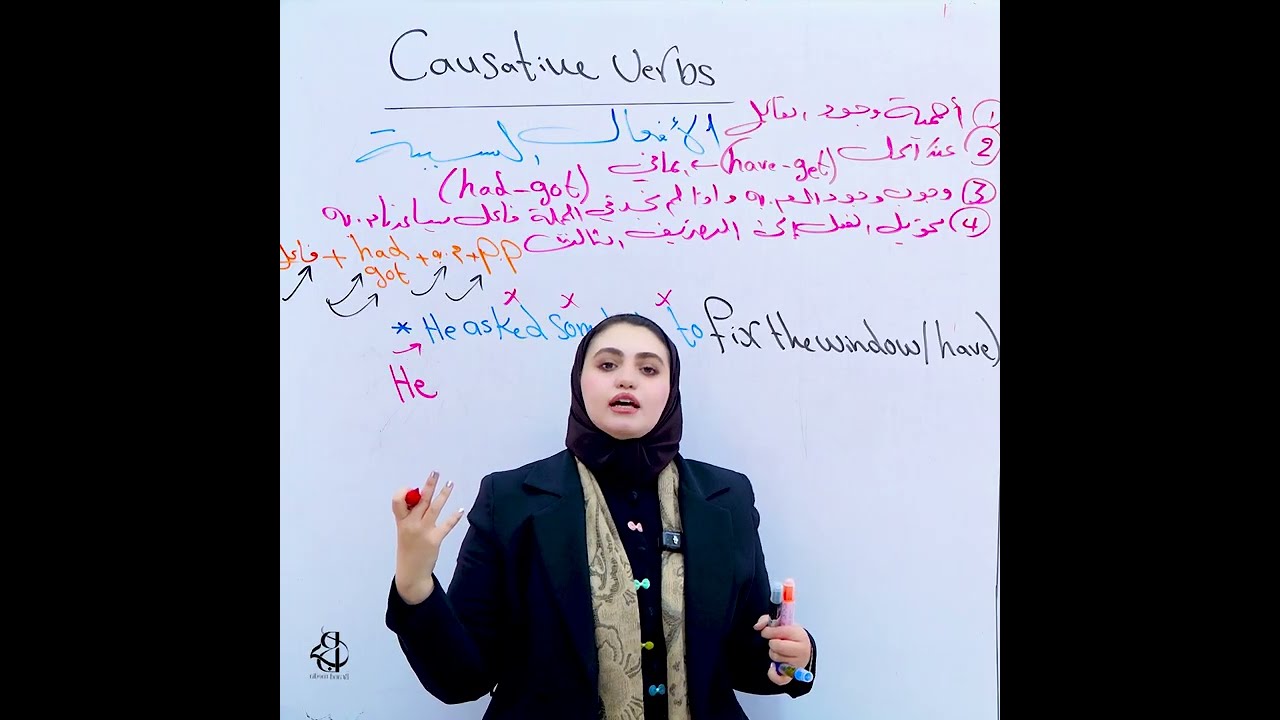 Causative Verbs
الأفعال السببية
① أهمية وجود الفاعل
② عند الحل (have-get) ← بماضي
(had-got)
③ وجوب وجود الـ م.به واذا لم نجد في الجملة فاعل سيا م.به
④ تحويل الفعل إلى التصريف الثالث
فاعل + had + م.به + p.p
got
x x x
* He asked som to fix the window/have)
He